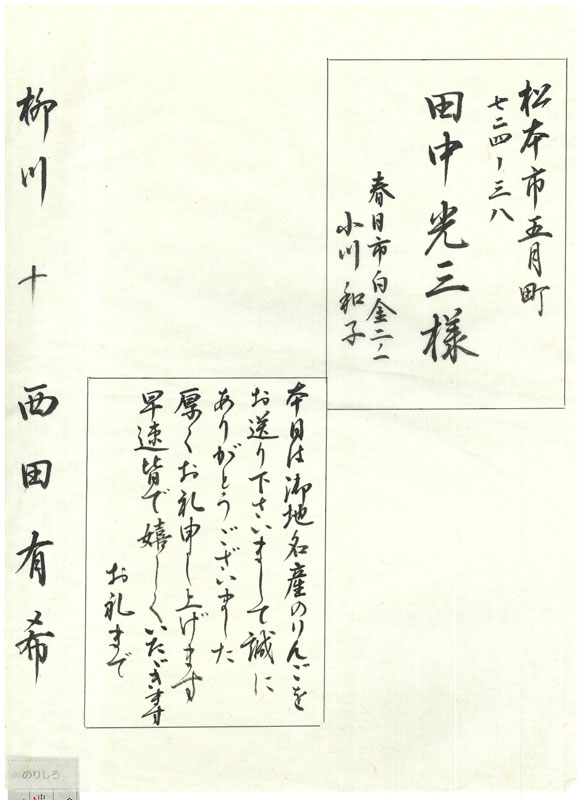 松本市五月町
七二四ー三八
田中光三様
春日市白金二ノ一
小川和子
本日は御地名産のりんごを
お送り下さいまして誠に
ありがとうございました
厚くお礼申し上げます
早速皆で嬉しくいただきます
お礼まで
柳川 十 西田有希
のりしろ